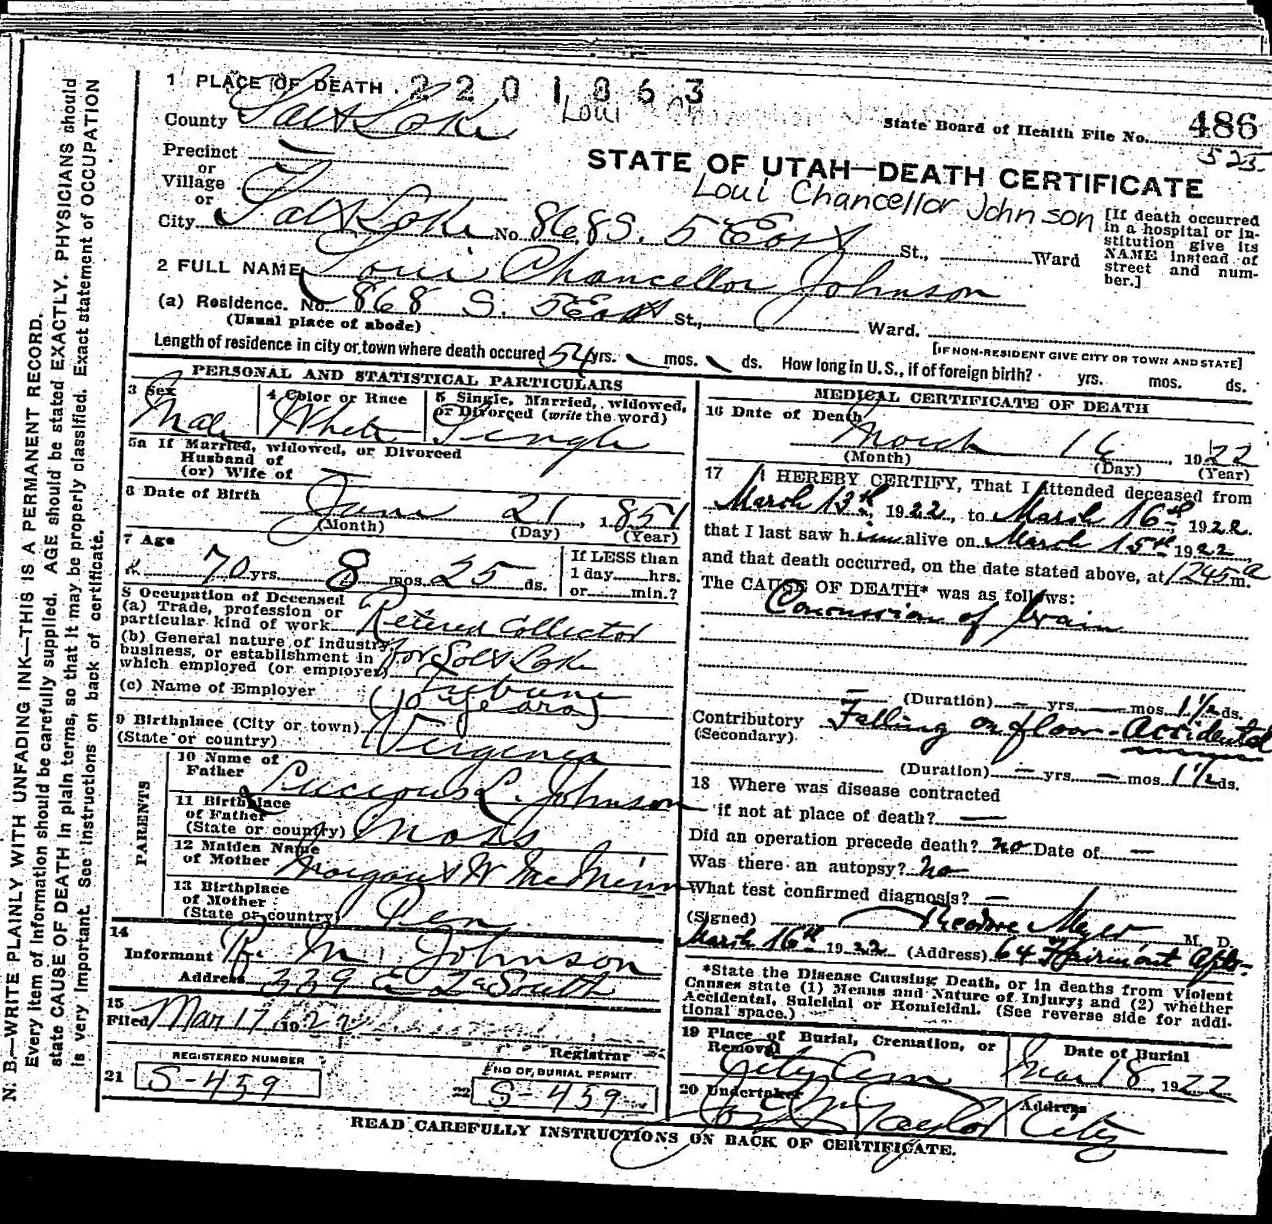 1 PLACE OF DEATH . 2201863
Loui
County Salt Lake
State Board of Health File No. 486
523
Precinct
or
Village
or
STATE OF UTAH—DEATH CERTIFICATE
Loui Chancellor Johnson
City Salt Lake No. 868 S. 5 East St., Ward
[If death occurred in a hospital or institution give its NAME instead of street and number.]
2 FULL NAME Loui Chancellor Johnson
(a) Residence. No. 868 S. 5 East St., Ward.
(Usual place of abode)
[IF NON-RESIDENT GIVE CITY OR TOWN AND STATE]
Length of residence in city or town where death occured 54 yrs. mos. ds. How long in U. S., if of foreign birth? yrs. mos. ds.
PERSONAL AND STATISTICAL PARTICULARS
3 Sex Male
4 Color or Race White
5 Single, Married, widowed, or Divorced (write the word) Single
5a If Married, widowed, or Divorced
Husband of
(or) Wife of
6 Date of Birth June 21, 1851
(Month) (Day) (Year)
7 Age 70 yrs. 8 mos. 25 ds.
If LESS than
1 day hrs.
or min.?
8 Occupation of Deceased
(a) Trade, profession or particular kind of work Retired Collector
(b) General nature of industry, business, or establishment in which employed (or employer) for Salt Lake
(c) Name of Employer Tribune
(10 years)
9 Birthplace (City or town)
(State or country) Virginia
PARENTS
10 Name of Father Lucious L. Johnson
11 Birthplace of Father (State or country) Mass
12 Maiden Name of Mother Margaret W McMinn
13 Birthplace of Mother (State or country) Pen
14
Informant R. M. Johnson
Address 339 E 2d South
15
Filed Mar 17 1922
Registrar
REGISTERED NUMBER
21 S-459
NO OF BURIAL PERMIT.
22 S-459
MEDICAL CERTIFICATE OF DEATH
16 Date of Death March 16, 1922
(Month) (Day) (Year)
17 I HEREBY CERTIFY, That I attended deceased from
March 13th, 1922, to March 16th, 1922
that I last saw him alive on March 15th 1922
and that death occurred, on the date stated above, at 1245 a m.
The CAUSE OF DEATH* was as follows:
Concussion of brain
(Duration) — yrs. — mos. 1½ ds.
Contributory Falling on floor - Accidental
(Secondary)
(Duration) — yrs. — mos. 1½ ds.
18 Where was disease contracted
if not at place of death? —
Did an operation precede death? no Date of —
Was there an autopsy? no
What test confirmed diagnosis? —
(Signed) Theodore Meyer M. D.
March 16th 1922 (Address) 64 Fairmont Apts.
*State the Disease Causing Death, or in deaths from Violent
Causes state (1) Means and Nature of Injury; and (2) whether
Accidental, Suicidal or Homicidal. (See reverse side for additional space.)
19 Place of Burial, Cremation, or Removal City Cem
Date of Burial Mar 18, 1922
20 Undertaker Taylor
Address City
READ CAREFULLY INSTRUCTIONS ON BACK OF CERTIFICATE.
N. B.—WRITE PLAINLY WITH UNFADING INK—THIS IS A PERMANENT RECORD.
Every item of information should be carefully supplied. AGE should be stated EXACTLY. PHYSICIANS should
state CAUSE OF DEATH in plain terms, so that it may be properly classified. Exact statement of OCCUPATION
is very important. See instructions on back of certificate.